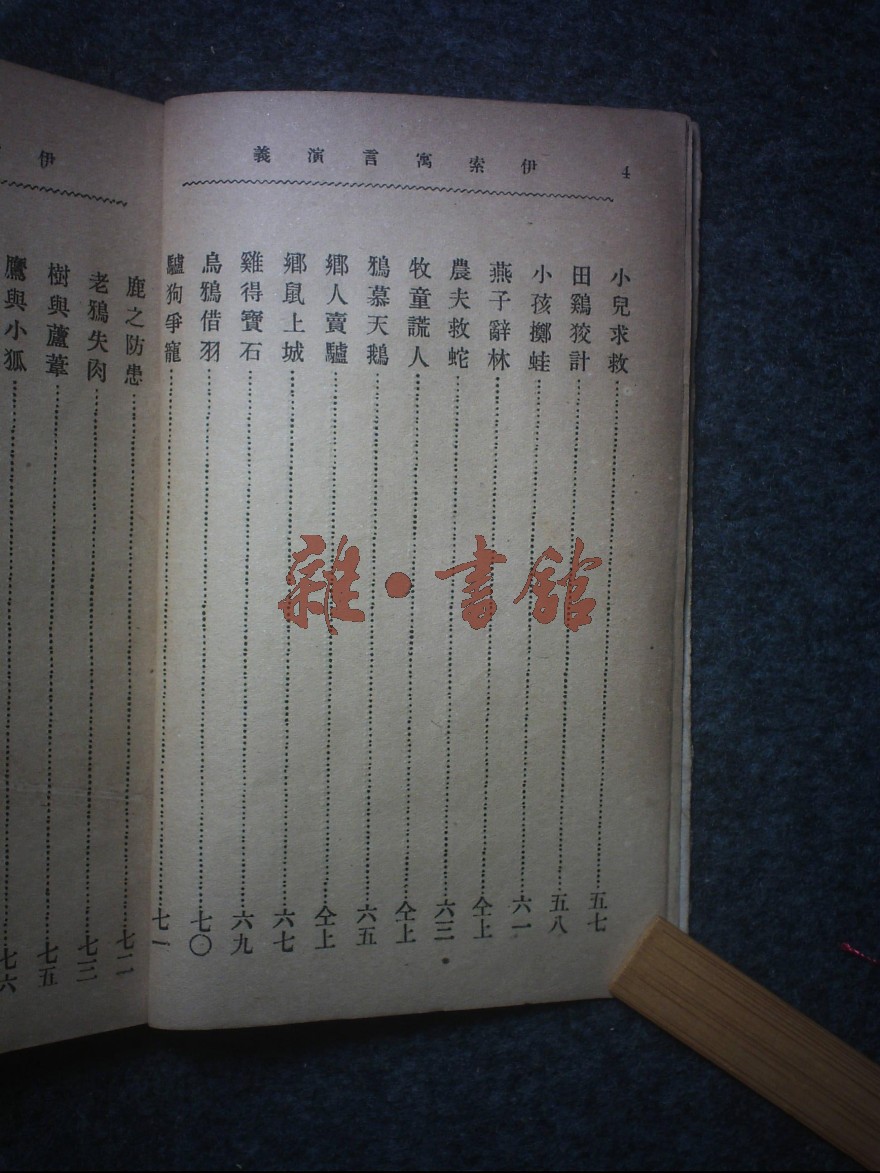 4 伊索寓言演義
小兒求救……五七
田鷄狡計……五八
小孩擲蛙……六一
燕子辭林……仝上
農夫救蛇……六三
牧童謊人……仝上
鴉慕天鵝……六五
鄉人賣驢……仝上
鄉鼠上城……六七
雞得寶石……六九
烏鴉借羽……七〇
驢狗爭寵……七一
伊
鹿之防患……七二
老鴉失肉……七三
樹與蘆葦……七五
鷹與小狐……七六
雜·書館